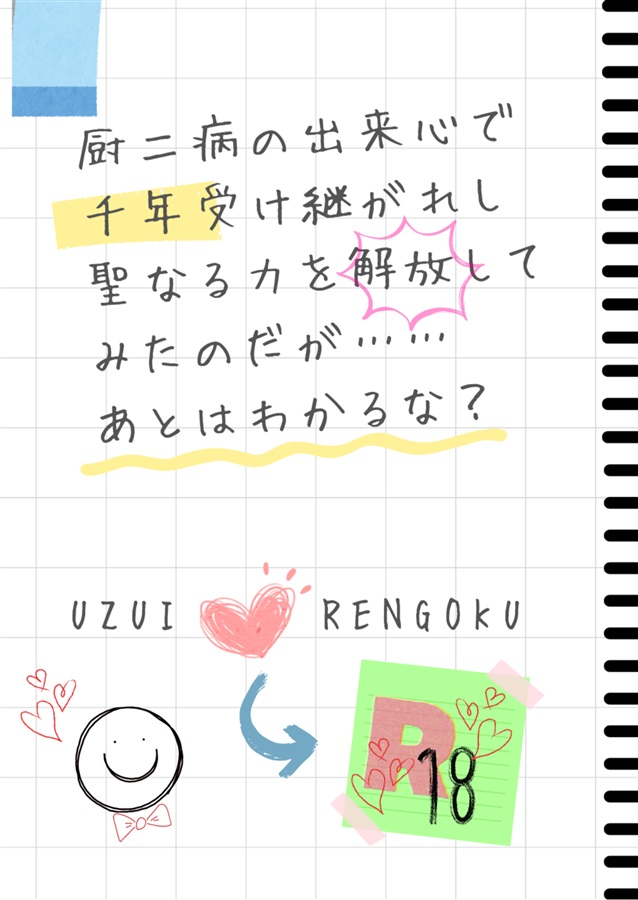 厨二病の出来心で
千年受け継がれし
聖なる力を解放して
みたのだが……
あとはわかるな？
UZUI RENGOKU
R18